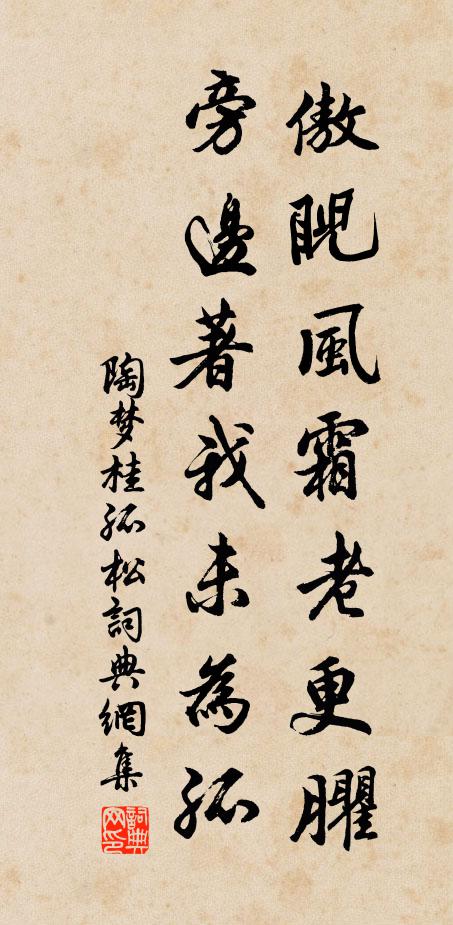 傲睨風霜老更臞
旁邊著我未為孤
陶梦桂孤松詞典網集
詞典网印